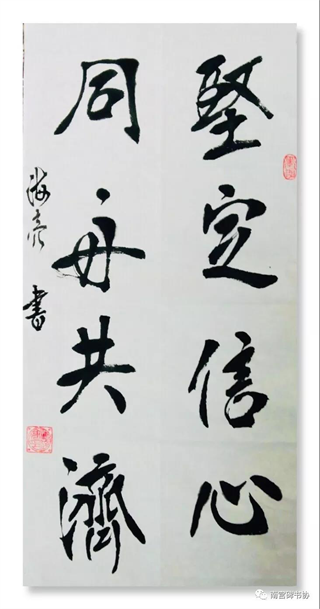 堅定信心
同舟共濟
海亮書
南宫碑书协